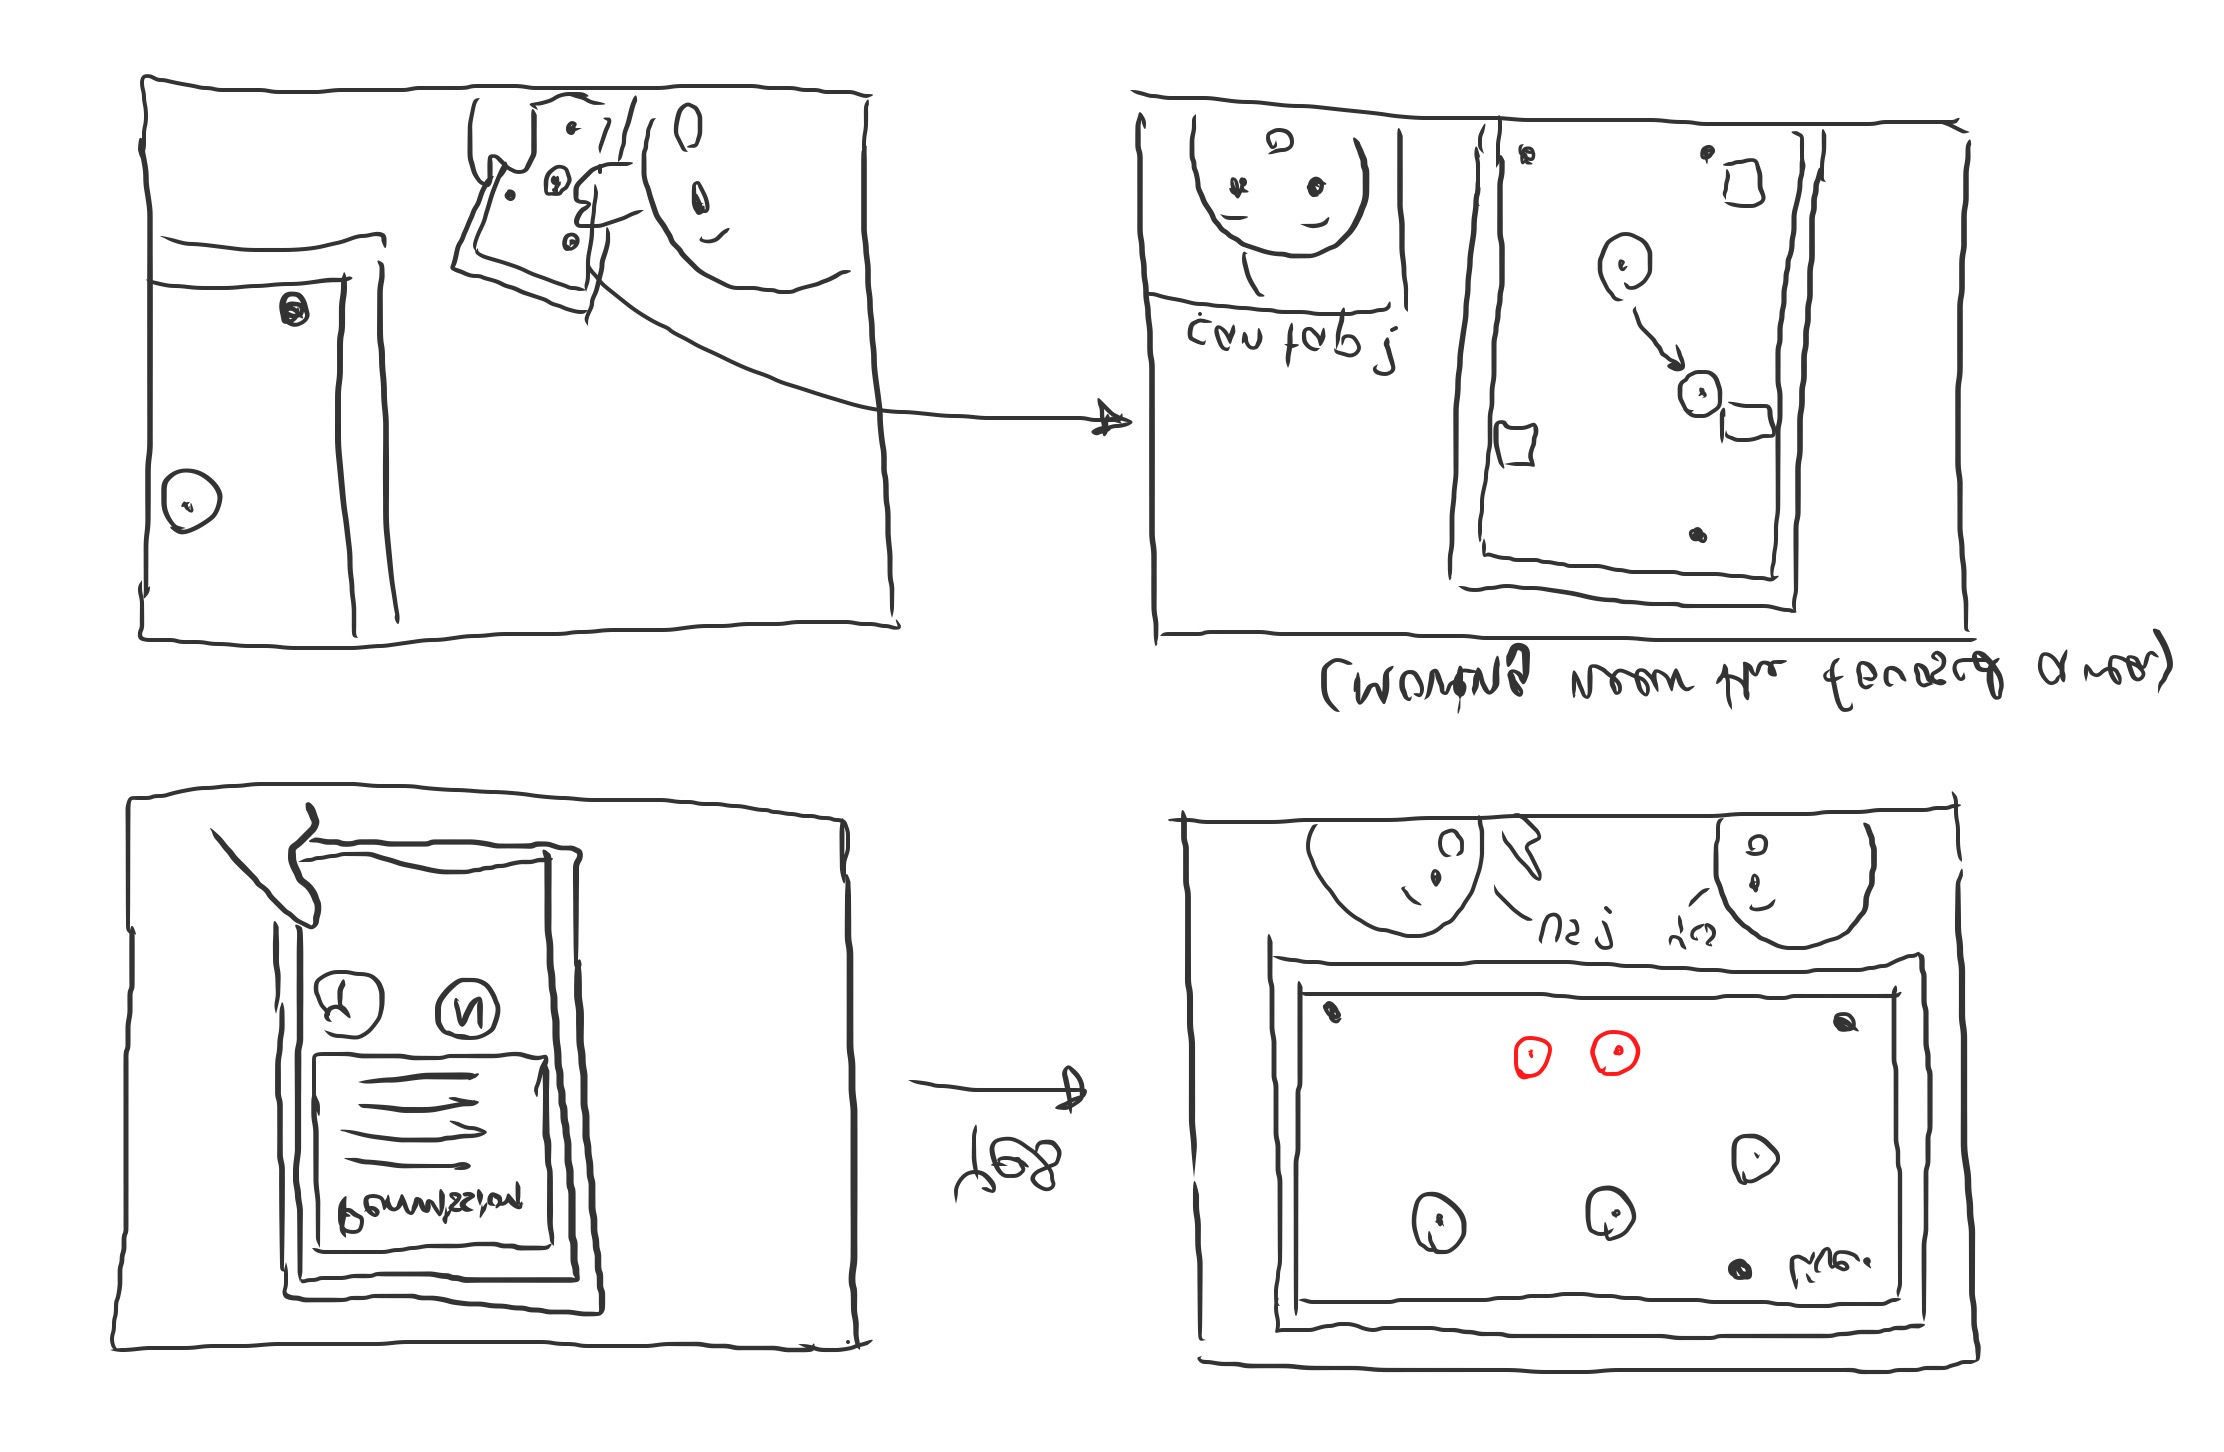 Permission
Y N
Yes
Live.
US?
Yes
(Moving near the focused area)
can tap?